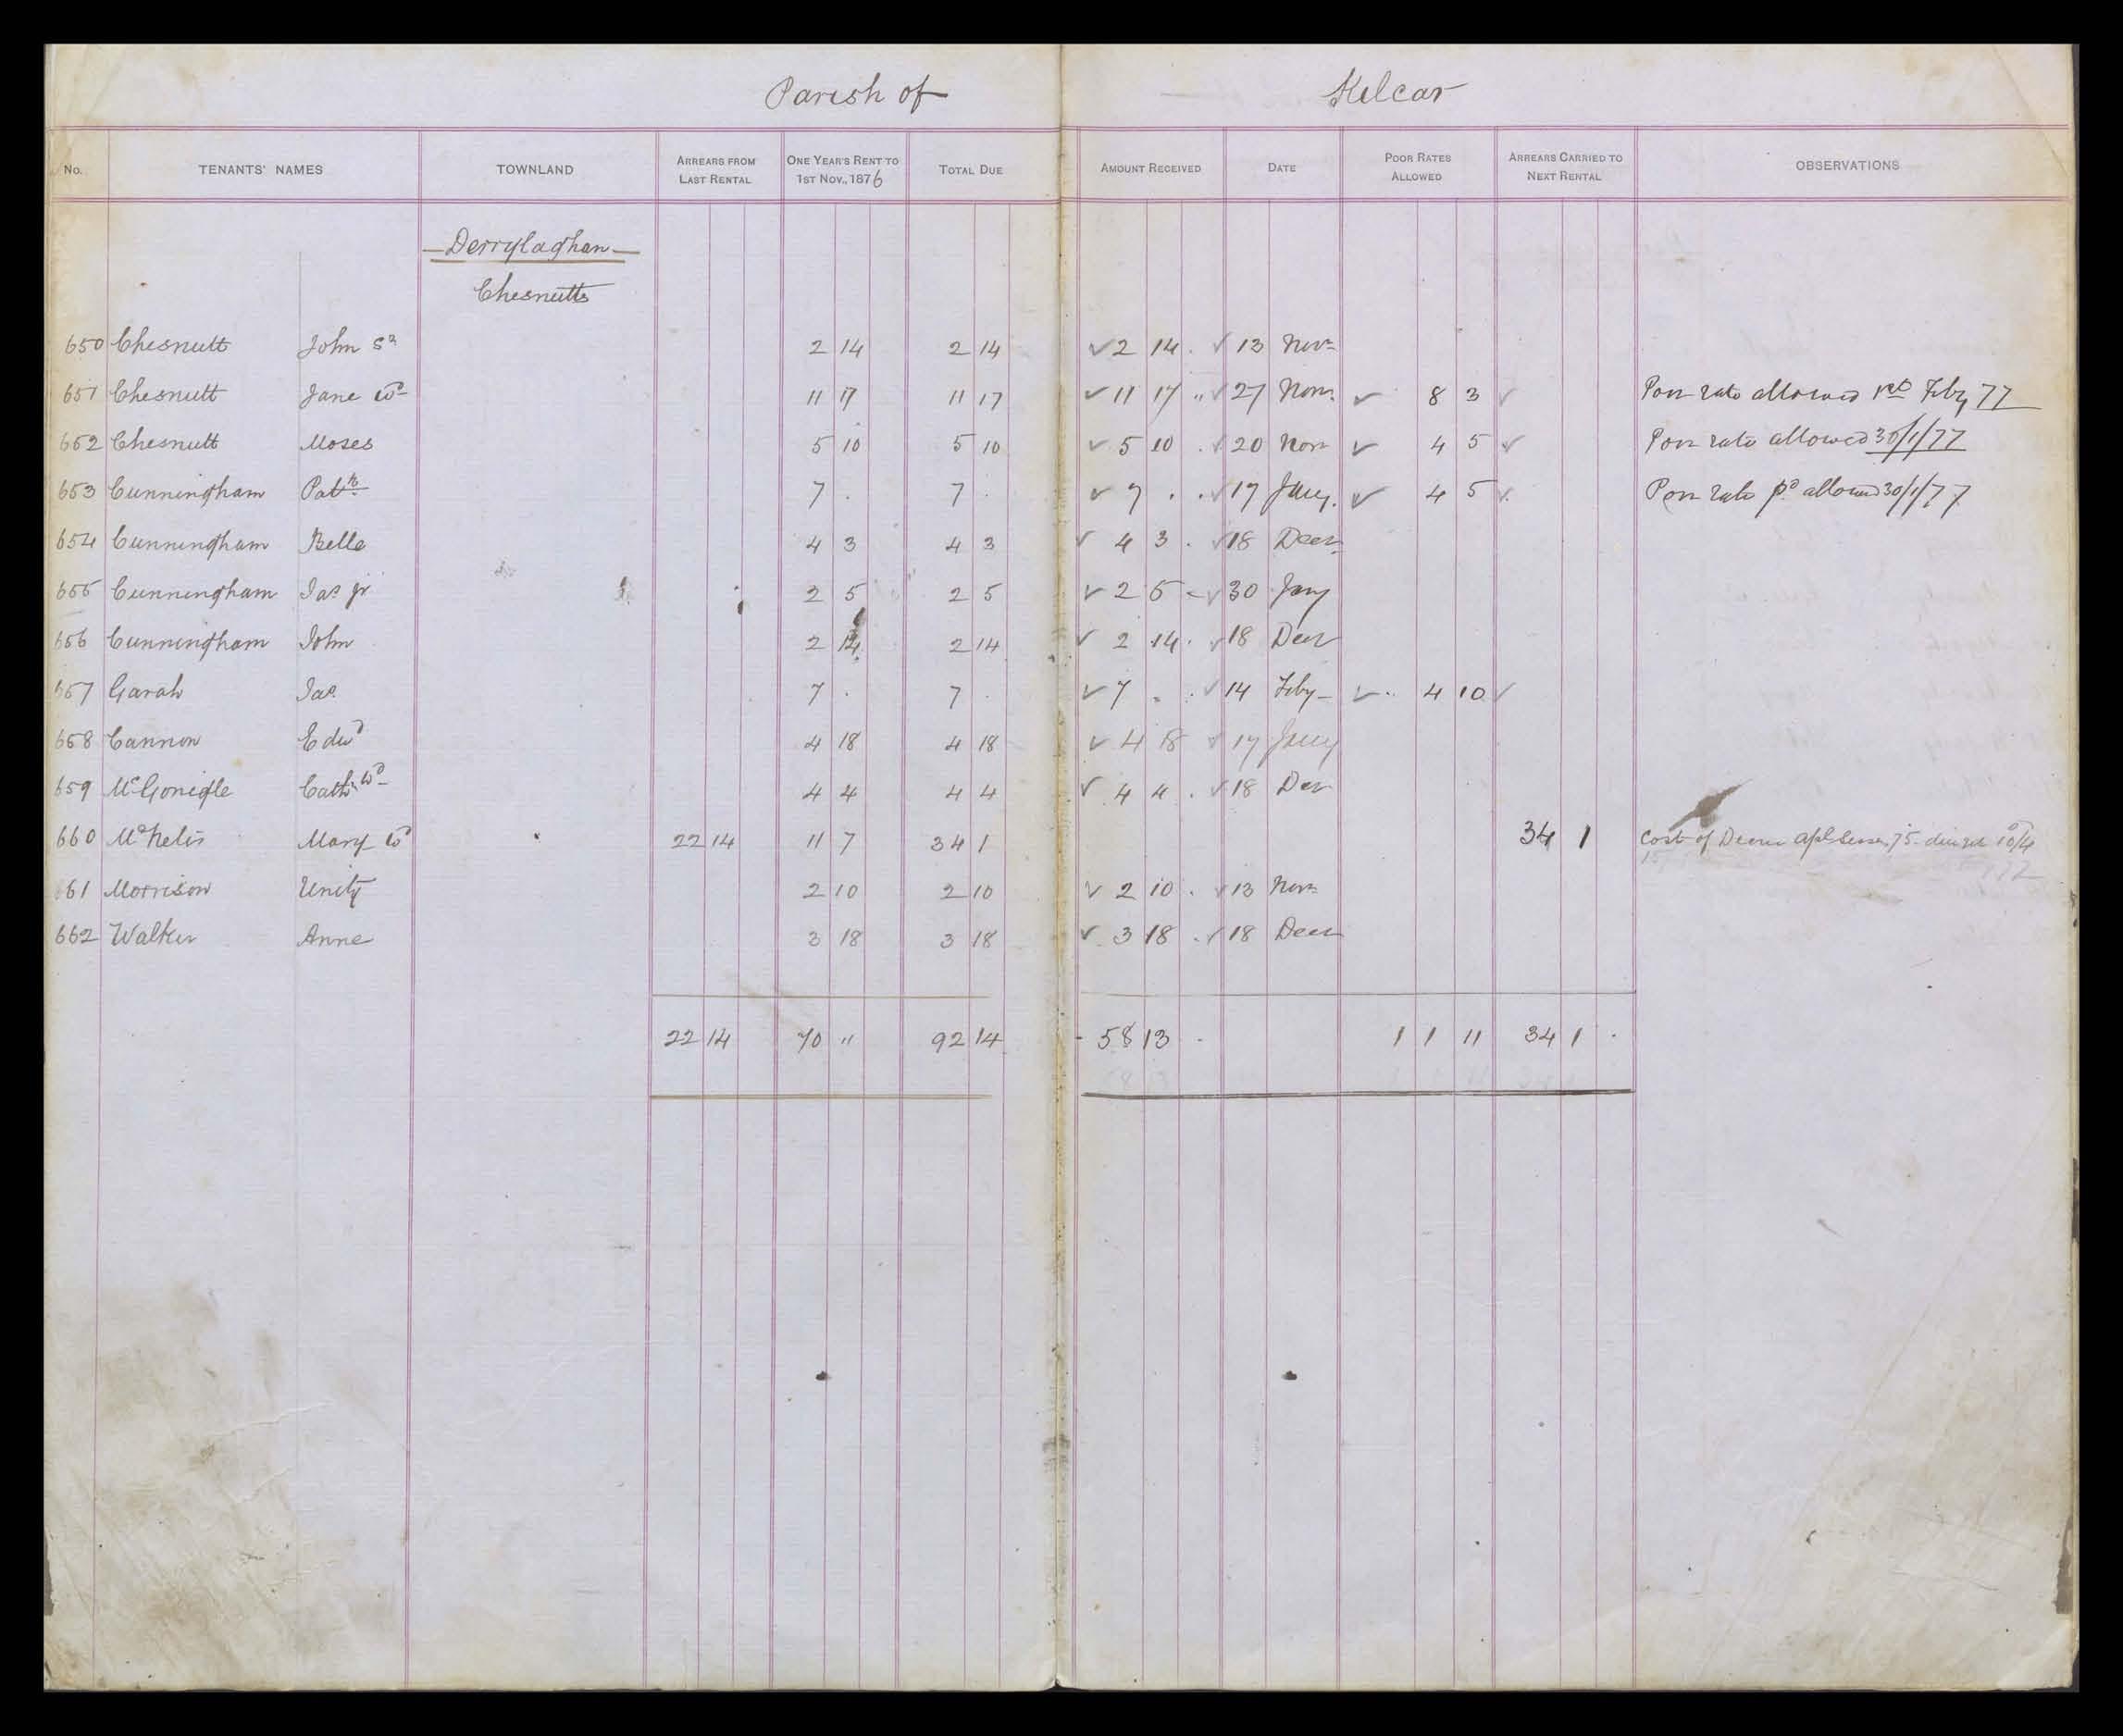 Parish of Kilcar
No. TENANTS' NAMES TOWNLAND ARREARS FROM LAST RENTAL ONE YEAR'S RENT TO 1ST NOV., 1876 TOTAL DUE AMOUNT RECEIVED DATE POOR RATES ALLOWED ARREARS CARRIED TO NEXT RENTAL OBSERVATIONS
Derrylaghan
Chesnutts
650 Chesnutt John Sr 2 14 2 14 ✓ 2 14 . ✓ 13 Novr
651 Chesnutt Jane Wd 11 17 11 17 ✓ 11 17 " ✓ 27 Novr ✓ 8 3 ✓ Poor rate allowed 1st Feby 77
652 Chesnutt Moses 5 10 5 10 ✓ 5 10 . ✓ 20 Novr ✓ 4 5 ✓ Poor rate allowed 30/1/77
653 Cunningham Patk 7 . 7 . ✓ 7 . . ✓ 17 Jany. ✓ 4 5 ✓ Poor rate pd allowed 30/1/77
654 Cunningham Belle 4 3 4 3 ✓ 4 3 . ✓ 18 Decr
655 Cunningham Jas Jr 2 5 2 5 ✓ 2 5 - ✓ 30 Jany
656 Cunningham John 2 14 2 14 ✓ 2 14 . ✓ 18 Decr
657 Garah Jas 7 . 7 . ✓ 7 . . ✓ 14 Feby ✓ 4 10 ✓
658 Cannon Edwd 4 18 4 18 ✓ 4 18 ✓ 17 Jany
659 McGonigle Cath Wd 4 4 4 4 ✓ 4 4 . ✓ 18 Decr
660 McNelis Mary Wd 22 14 11 7 34 1 34 1 Cost of Decree
661 Morrison Unity 2 10 2 10 ✓ 2 10 . ✓ 13 Novr
662 Walker Anne 3 18 3 18 ✓ 3 18 . ✓ 18 Decr
22 14 70 " 92 14 58 13 - 1 1 11 34 1 .